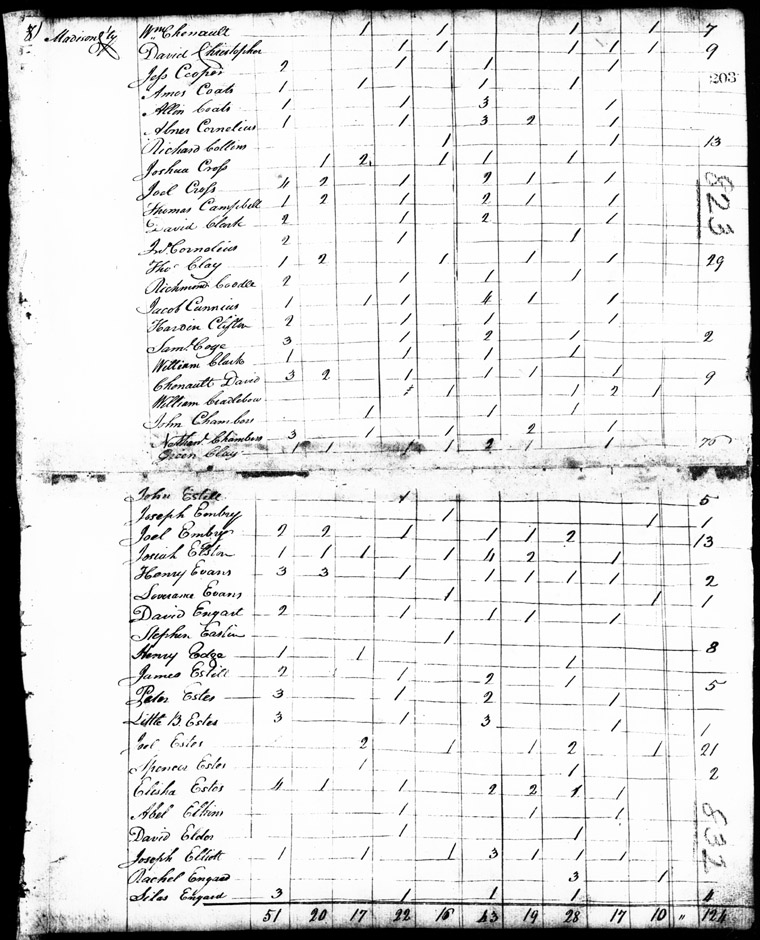 8 Madison Cty Wm Chenault 1 1 1 1 7
David Christopher 1 1 1 1 1 9
Jess Cooper 2 1 1 1
203
Amos Coats 1 1 1 1
Allin Coats 1 1 3 1
Abner Cornelius 1 1 3 2 1
Richard Collins 1 1 13
Joshua Cross 1 2 1 1 1
Joel Cross 4 2 1 2 1 1
Thomas Campbell 1 2 1 2 1 1
823
David Clark 2 1 2 1
Jno Cornelius 2 1 1
Tho Clay 1 2 1 1 1 29
Richmond 2 1 1 1
Jacob 1 1 1 4 1 1
Hardin Clifton 2 1 1 1
Saml 3 1 2 1 2
William Clark 1 1 1 1
Chenault David 3 2 1 1 1 1 9
William 1 1 1 2 1
John Chambers 1 1 1
Chambers 3 1 1 2 1
Green Clay 1 1 1 1 2 1 1
John Estill 1 5
Joseph Embry 1 1 1
Joel Embry 2 2 1 1 1 2 13
Josiah 1 1 1 1 4 2 1
Henry Evans 3 3 1 1 1 1 1 2
Evans 1 1 1
David Engart 2 1 1 1 1
Stephen Eastin 1
Henry Edge 1 1 1 8
James Estill 2 1 2 1 5
Peter Estes 3 1 2 1
Little B. Estes 3 1 3 1 1
Joel Estes 2 1 1 2 1 21
Spencer Estes 1 1 2
Elisha Estes 4 1 1 2 2 1 1
Abel Elkins 1 1 1
David Elder 1 1
832
Joseph Elliott 1 1 1 3 1 1 1
Rachel Engard 3 1
Silas Engard 3 1 1 1 4
51 20 17 22 16 43 19 28 17 10 " 124